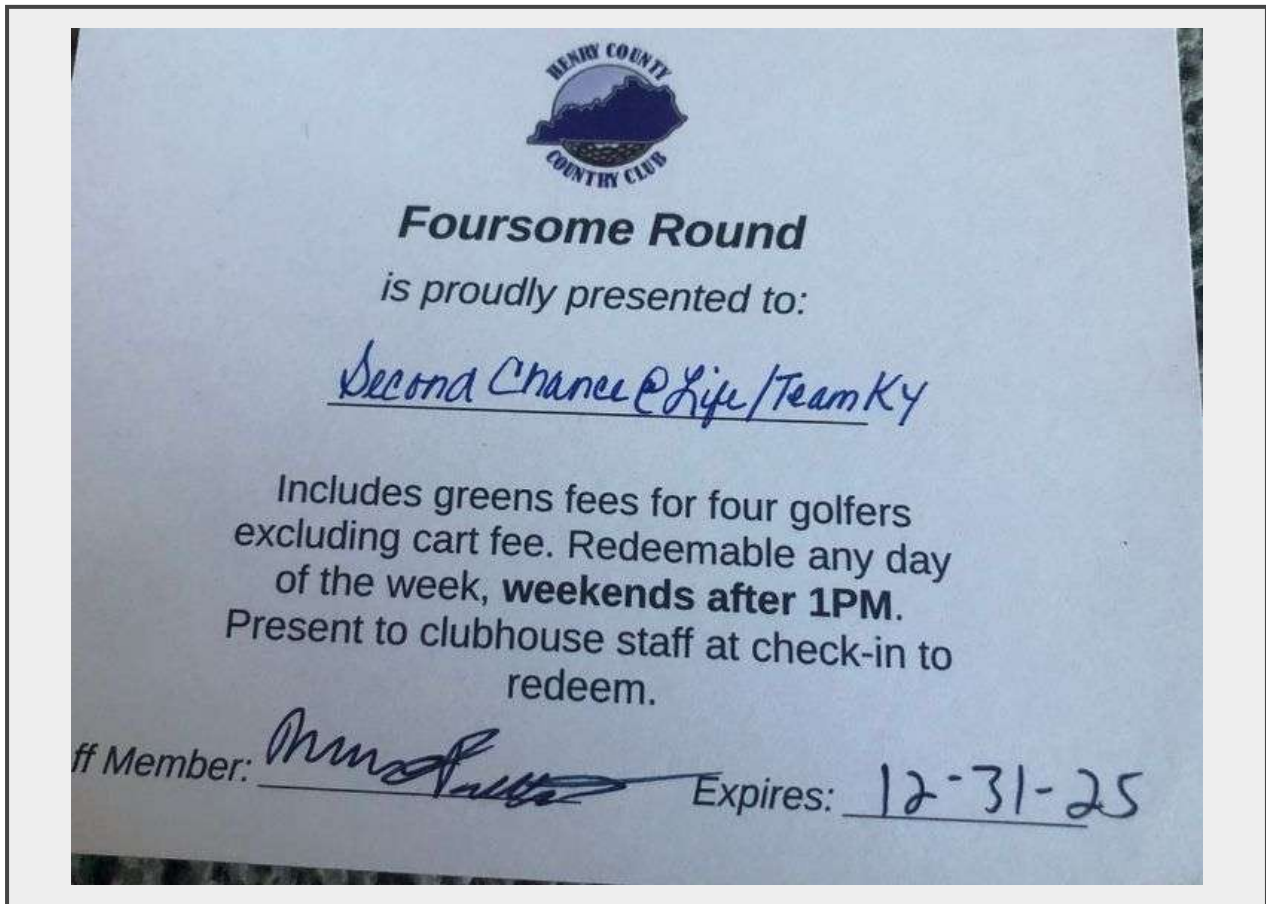 HENRY COUNTY
COUNTRY CLUB
Foursome Round
is proudly presented to:
Second Chance @ Life/Team KY
Includes greens fees for four golfers
excluding cart fee. Redeemable any day
of the week, weekends after 1PM.
Present to clubhouse staff at check-in to
redeem.
ff Member: Expires: 12-31-25